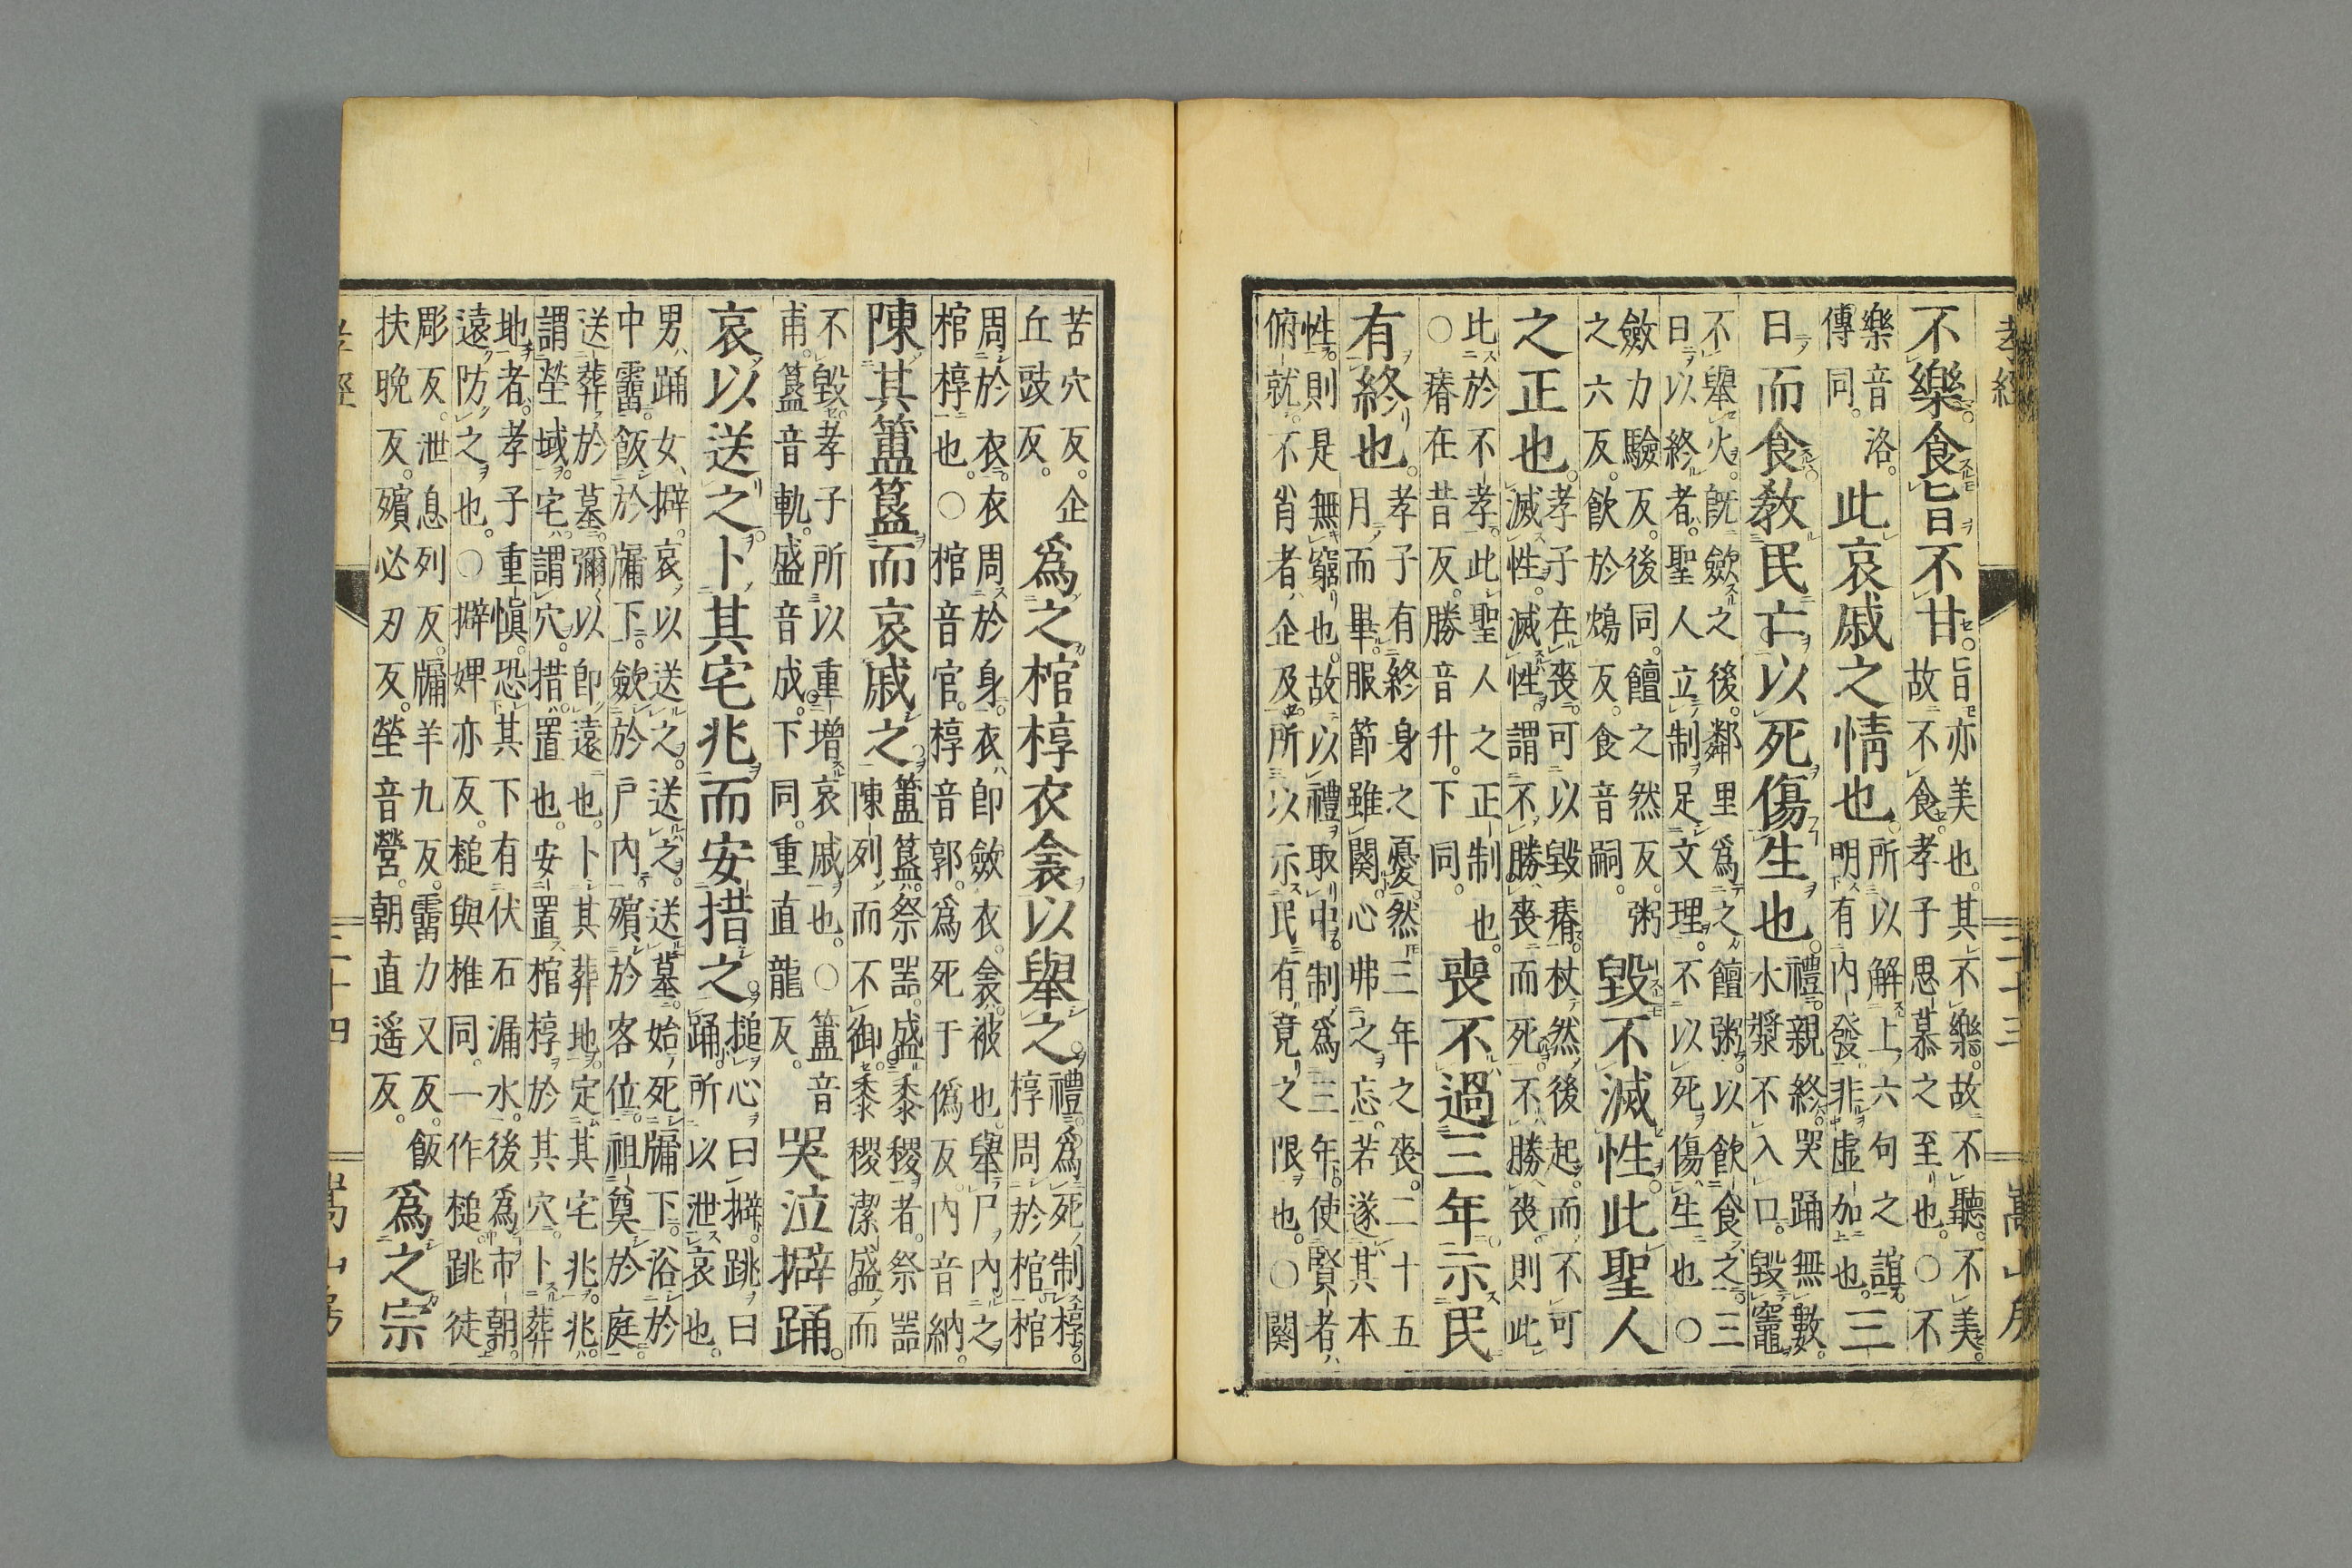 孝經 二十三 嵩山房
不樂食旨不甘
旨亦美也其不樂故不聽不美
故不食孝子思慕之至也○不
樂音洛
傳同
此哀戚之情也
所以解上六句之誼
明有內發非虛加也
三
日而食教民亡以死傷生也
禮親終哭踊無數
水漿不入口毀竈
不舉火既斂之後鄰里爲之饘粥以飲食之三
日以終者聖人立制足文理不以死傷生也○
斂力驗反後同饘之然反粥
之六反飲於鴆反食音嗣
毀不滅性此聖人
之正也
孝子在喪可以毀瘠杖然後起而不可
滅性滅性謂不勝喪而死不勝喪則此
此於不孝此聖人之正制也
○瘠在昔反勝音升下同
喪不過三年示民
有終也
孝子有終身之憂然三年之喪二十五
月而畢服節雖闋心弗之忘若遂其本
性則是無窮也故以禮取中制爲三年使賢者
俯就不肖者企及所以示民有竟之限也○闋
苦穴反企
丘豉反
爲之棺椁衣衾以舉之
禮爲死制椁
椁周於棺棺
周於衣衣周於身衣即斂衣衾被也舉尸內之
棺椁也○棺音官椁音郭爲死于僞反內音納
陳其簠簋而哀戚之
簠簋祭器盛黍稷者祭器
陳列而不御黍稷潔盛而
不毀孝子所以重增哀戚也○簠音
甫簋音軌盛音成下同重直龍反
哭泣擗踊
哀以送之卜其宅兆而安措之
搥心曰擗跳曰
踊所以泄哀也
男踊女擗哀以送之送之送墓始死牖下浴於
中霤飯於牖下斂於戶內殯於客位祖奠於庭
送葬於墓彌以即遠也卜其葬地定其宅兆兆
謂塋域宅謂穴措置也安置棺椁於其穴卜葬
地者孝子重愼恐其下有伏石漏水後爲市朝
遠防之也○擗婢亦反搥與推同一作槌跳徒
彫反泄息列反牖羊九反霤力又反飯
扶晚反殯必刃反塋音營朝直遙反
爲之宗
孝經 二十四 嵩山房